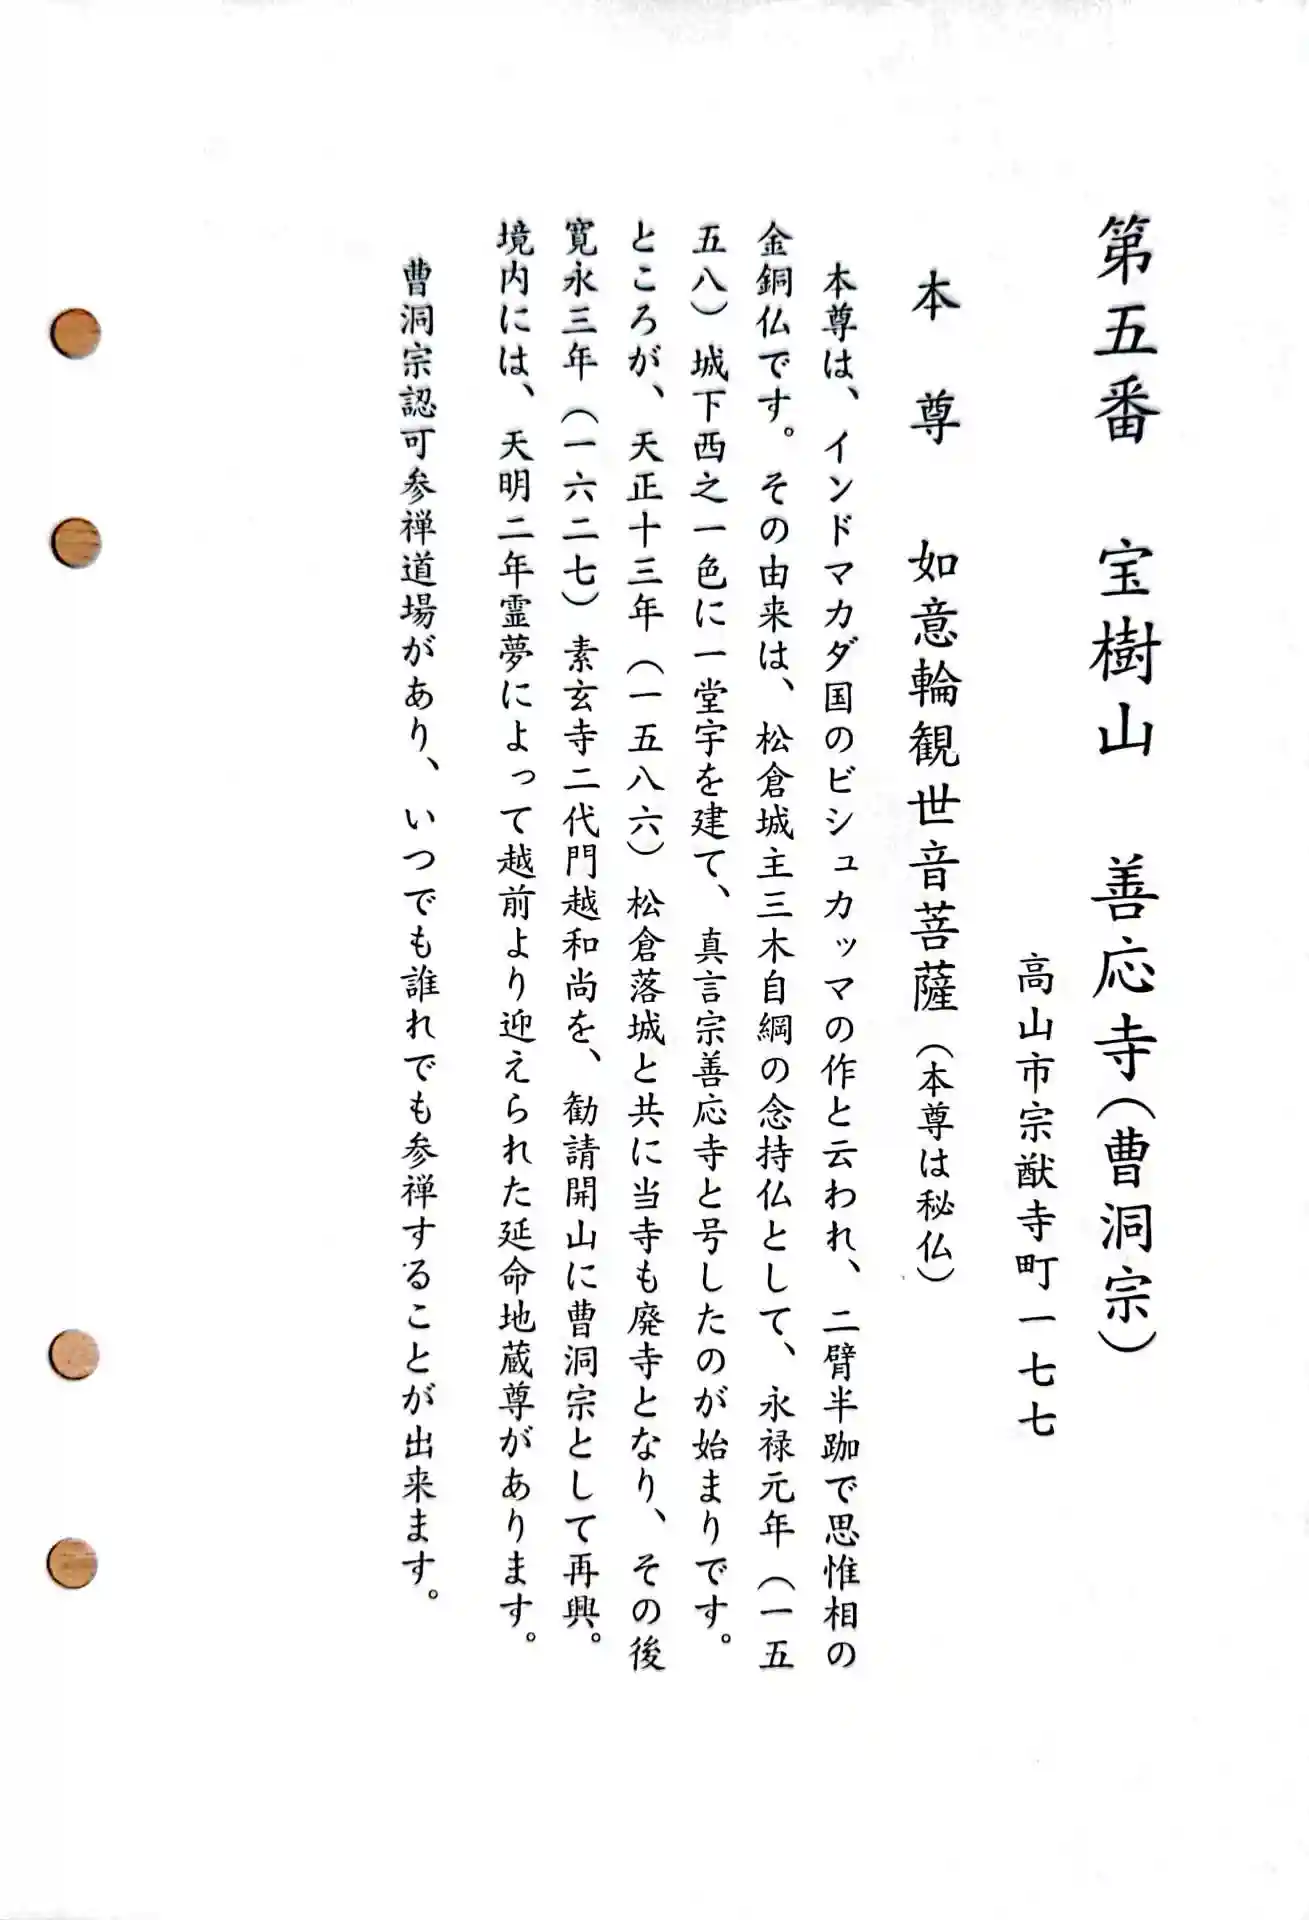 第五番　宝樹山　善応寺（曹洞宗）
高山市宗猷寺町一七七
本　尊　如意輪観世音菩薩（本尊は秘仏）
本尊は、インドマカダ国のビシュカッマの作と云われ、二臂半跏で思惟相の
金銅仏です。その由来は、松倉城主三木自綱の念持仏として、永禄元年（一五
五八）城下西之一色に一堂宇を建て、真言宗善応寺と号したのが始まりです。
ところが、天正十三年（一五八六）松倉落城と共に当寺も廃寺となり、その後
寛永三年（一六二七）素玄寺二代門越和尚を、勧請開山に曹洞宗として再興。
境内には、天明二年霊夢によって越前より迎えられた延命地蔵尊があります。
曹洞宗認可参禅道場があり、いつでも誰れでも参禅することが出来ます。